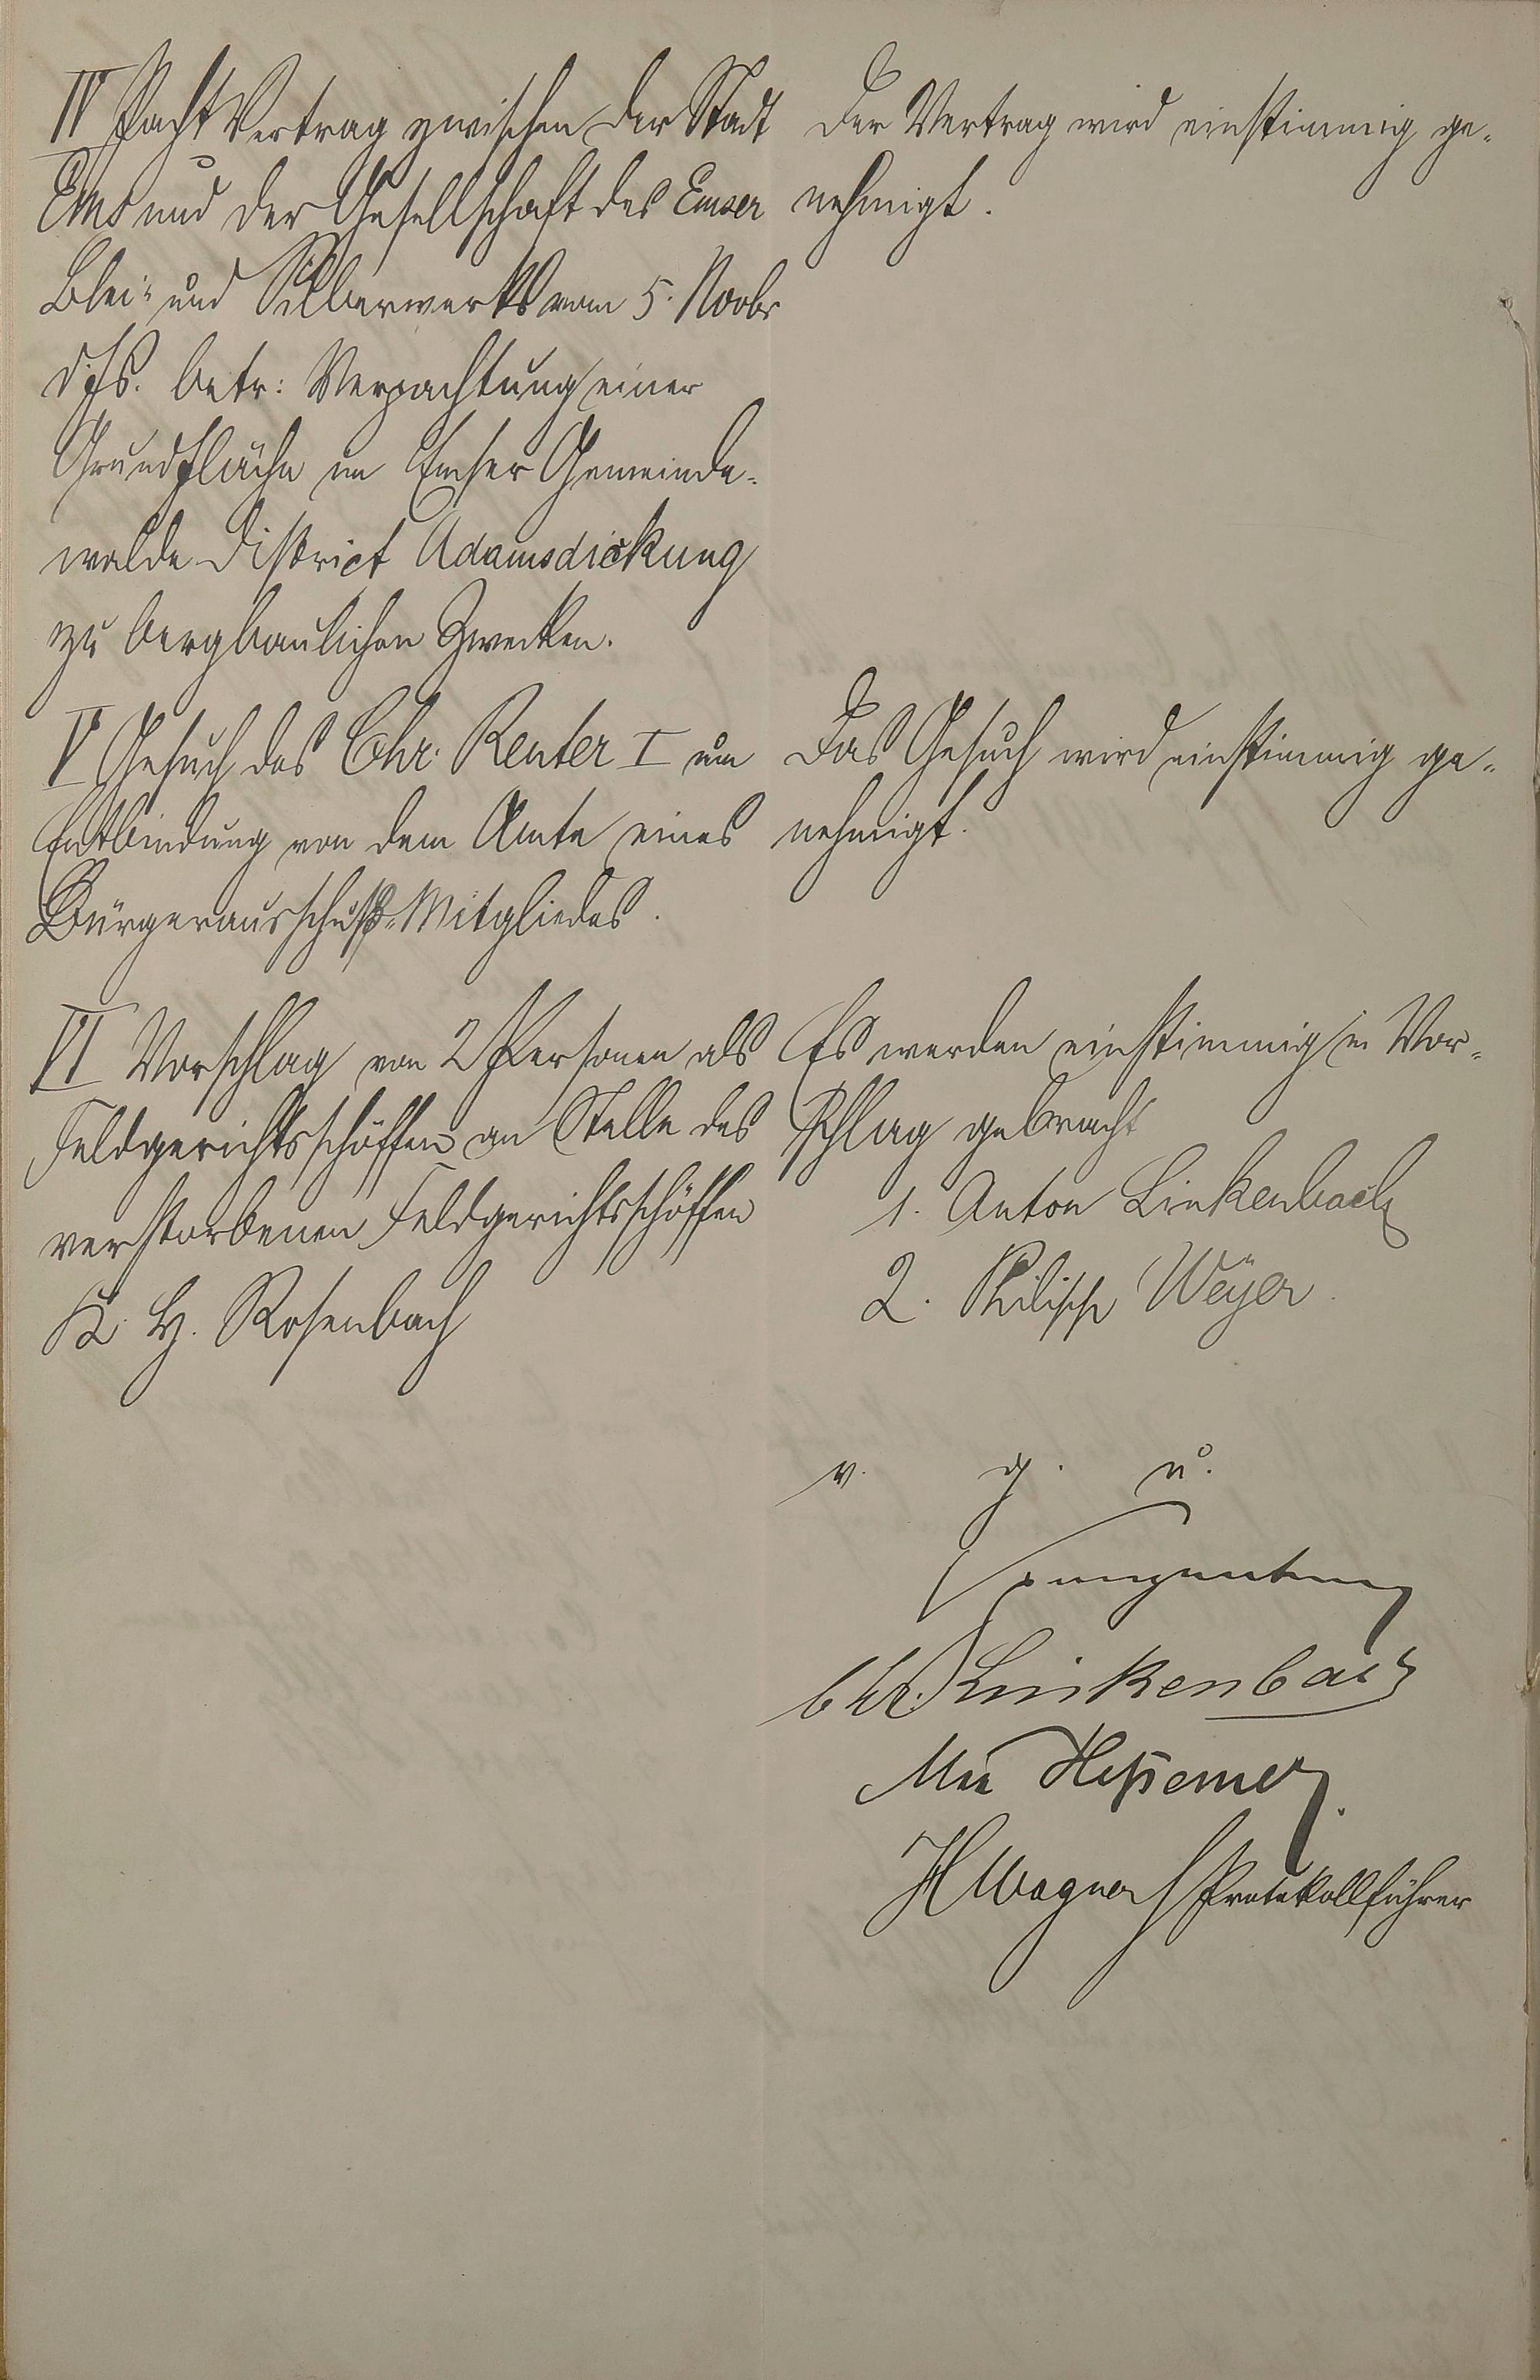 IV Pacht Vertrag zwischen der Stadt
Ems und der Gesellschaft des Emser
Blei- und Silberwerks vom 5. Novbr
d. Js. betr: Verpachtung einer
Grundfläche im Emser Gemeinde-
walde District Adamsdickung
zu bergbaulichen Zwecken.
Der Vertrag wird einstimmig ge-
nehmigt.
V Gesuch des Chr. Reuter I um
Entbindung von dem Amte eines
Bürgerausschuß-Mitgliedes.
Das Gesuch wird einstimmig ge-
nehmigt.
VI Vorschlag von 2 Personen als
Feldgerichtsschöffen an Stelle des
verstorbenen Feldgerichtsschöffen
K. H. Rosenbach
Es werden einstimmig in Vor-
schlag gebracht
1. Anton Linkenbach
2. Philipp Weyer.
v. g. u.
Chr. Linkenbach
Hessemer.
H Wagner Protokollführer